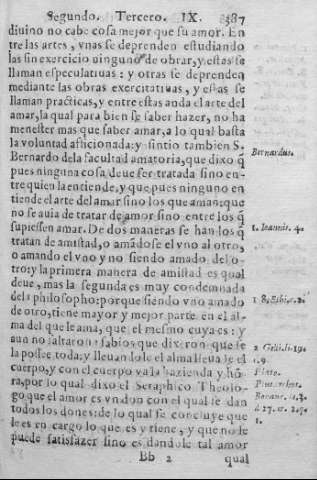 Segundo. Tercero. IX. 387
diuino no cabe cosa mejor que su amor. En
tre las artes, vnas se deprenden estudiando
las sin exercicio ninguno de obrar, y estas se
llaman especulatiuas: y otras se deprenden
mediante las obras exercitatiuas, y estas se
llaman practicas, y entre estas anda el arte del
amar, la qual para bien se saber hazer, no ha
menester mas que saber amar, a lo qual basta
la voluntad aficionada: y sintio tambien S.
Bernardo de la facultad amatoria, que dixo q̃
pues ninguna cosa deue ser tratada sino en-
tre quien la entiende, y que pues ninguno en
tiende el arte del amar sino los que aman: que
no se auia de tratar de amor sino entre los q̃
supiessen amar. De dos maneras se han los q̃
tratan de amistad, o amãdose el vno al otro,
o amando el vno y no siendo amado del o-
tro: y la primera manera de amistad es qual
deue, mas la segunda es muy condemnada
del philosopho: porque siendo vno amado
de otro, tiene mayor y mejor parte en el al-
ma del que le ama, que el mesmo cuya es: y
aun no faltaron sabios que dixeron que se
la possee toda; y lleuandole el alma lleuale el
cuerpo, y con el cuerpo va la hazienda y hõ
ra, por lo qual dixo el Seraphico Theolo-
go que el amor es vn don con el qual se dan
todos los dones: de lo qual se concluye que
le es en cargo lo que es y tiene, y que no se
puede satisfazer sino es dandole tal amor
Bb 2 qual
Bernardus.
1. Ioannis. 4.
1 8. Ethi. c. 2.
2 Gelli. li. 19.
c. 9.
Plato.